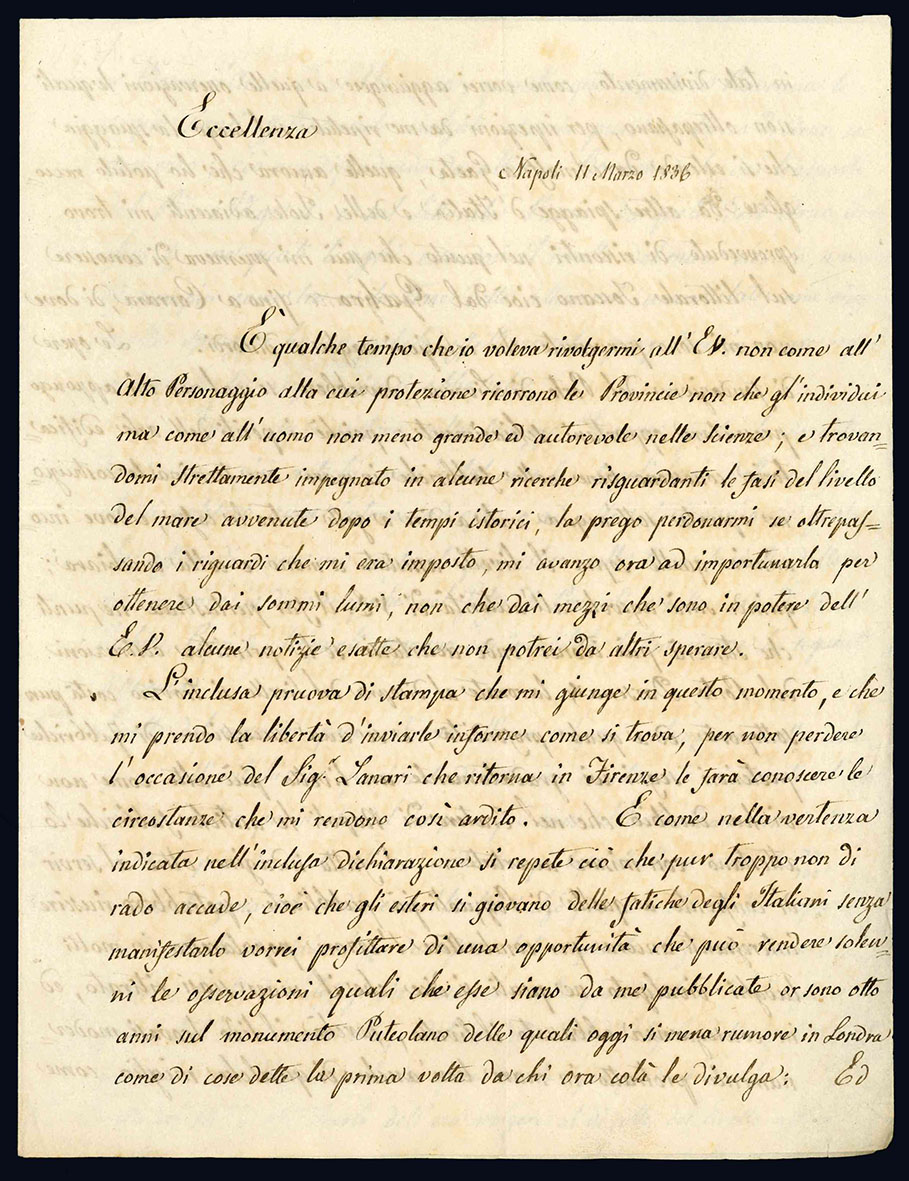 Eccellenza
Napoli 11 Marzo 1836
È qualche tempo che io voleva rivolgermi all' E.V. non come all'
Alto Personaggio alla cui protezione ricorrono le Provincie non che gl'individui
ma come all'uomo non meno grande ed autorevole nelle scienze; e trovan=
domi strettamente impegnato in alcune ricerche risguardanti le fasi del livello
del mare avvenute dopo i tempi istorici, la prego perdonarmi se oltrepas=
sando i riguardi che mi era imposto, mi avanzo ora ad importunarla per
ottenere dai sommi lumi, non che dai mezzi che sono in potere dell'
E.V. alcune notizie esatte che non potrei da altri sperare.
L'inclusa pruova di stampa che mi giunge in questo momento, e che
mi prendo la libertà d'inviarle informe come si trova, per non perdere
l'occasione del Sig.r Lanari che ritorna in Firenze le farà conoscere le
circostanze che mi rendono così ardito. E come nella vertenza
indicata nell'inclusa dichiarazione si repete ciò che pur troppo non di
rado accade, cioè che gli esteri si giovano delle fatiche degli Italiani senza
manifestarlo vorrei profittare di una opportunità che può rendere solen=
ni le osservazioni quali che esse siano da me pubblicate or sono otto
anni sul monumento Puteolano delle quali oggi si mena rumore in Londra
come di cose dette la prima volta da chi ora colà le divulga: Ed